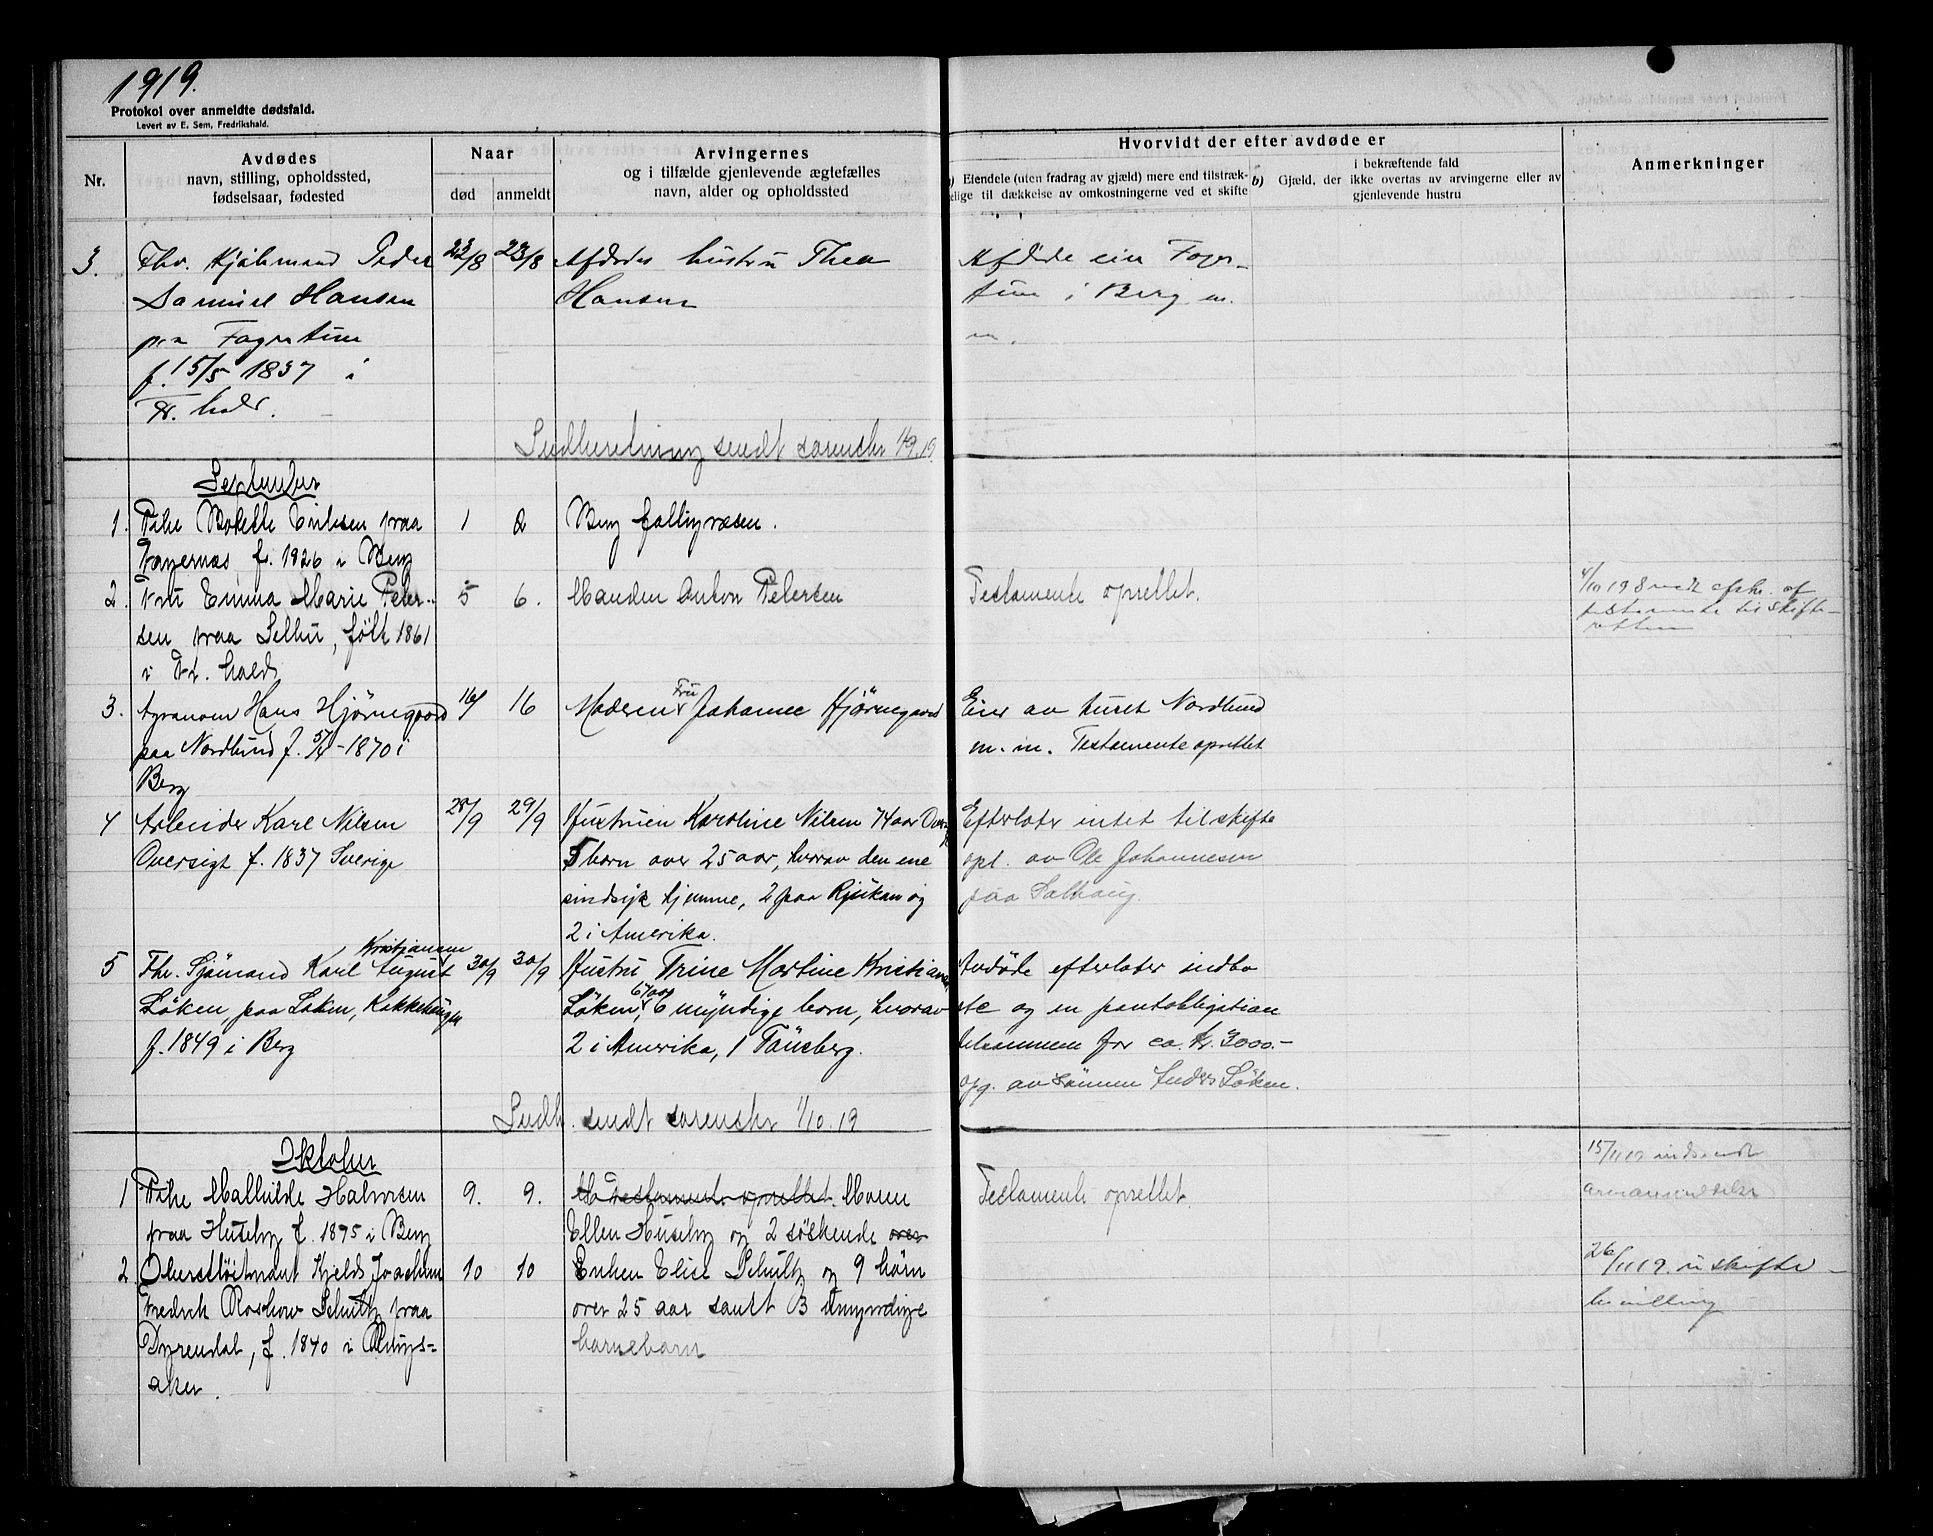 1919.
Protokol over anmeldte dødsfald.
Levert av E. Sem, Fredrikshald.
Nr.
Avdødes
navn, stilling, opholdssted,
fødselsaar, fødested
Naar
død
anmeldt
Arvingernes
og i tilfælde gjenlevende ægtefælles
navn, alder og opholdssted
Hvorvidt der efter avdøde er
a) Eiendele (uten fradrag av gjæld) mere end tilstræk-
kelige til dækkelse av omkostningerne ved et skifte
b) Gjæld, der i bekræftende fald
ikke overtas av arvingerne eller av
gjenlevende hustru
Anmerkninger
3. Fhv. Peder 22/8 23/8 Afdødes hustru Thea Afdøde eier Fager-
Samuel Hansen Hansen tun i Berg m.
paa Fagertun m.
f. 15/5 1837 i
Fr. hald.
Indberetning sendt sorenskr 1/9.19
September
1. Pike Bolette Eriksen paa 1 2 Berg fattigvæsen.
f. 1826 i Berg
2. Fru Emma Marie Peter- 5 6. Manden Anton Petersen Testamente oprettet. 4/10 19 Sendt afskr. af
sen paa Solbu, født 1861 testamente til skifte-
i Fr. hald retten
3. Agronom Hans Hjørnegaard 16/ 16 Moderen Fru Johanne Hjørnegaard Eier av huset Nordlund
paa Nordlund f. 5/4-1870 i m. m. Testamente oprettet
Berg
4 Arbeider Karl Nilsen 28/9 29/9 Hustruen Karoline Nilsen 74 aar Efterlater intet til skifte
Oversigt f. 1837 Sverige 5 born over 25 aar, hvorav den ene opl. av Ole Johannesen
sindsyk hjemme, 2 paa Rjukan og paa Solhaug.
2 i Amerika.
5 Fhv. Sjømand Karl August Kristjansen 30/9 30/9 Hustru Trine Martine Kristians Avdøde efterlater indbo
Løken, paa Løken, f. 1849 i Berg Løken, 67 aar 6 myndige born, hvorav etc og en pantobligation
2 i Amerika, 1 Tønsberg. tilsammen for ca. Kr. 3000.-
opg. av sønnen Anders Løken.
Indb. sendt sorenskr 1/10.19
Oktober
15/11 19 indsendt
1 Pike Mathilde Halvorsen 9. 9. Testament oprettet. Moren Testamente oprettet.
paa Huseby f. 1875 i Berg Ellen Huseby og 2 søskende over
2 Oberstløitnant Kjeld Joachim 10 10 Enken Elise Schultz og 9 børn 26/11 19. uskifte-
Fredrik Roshow Schultz paa over 25 aar samt 3 umyndige bevilling
Dyrendal, f. 1840 i Rakke-
aker. barnebarn